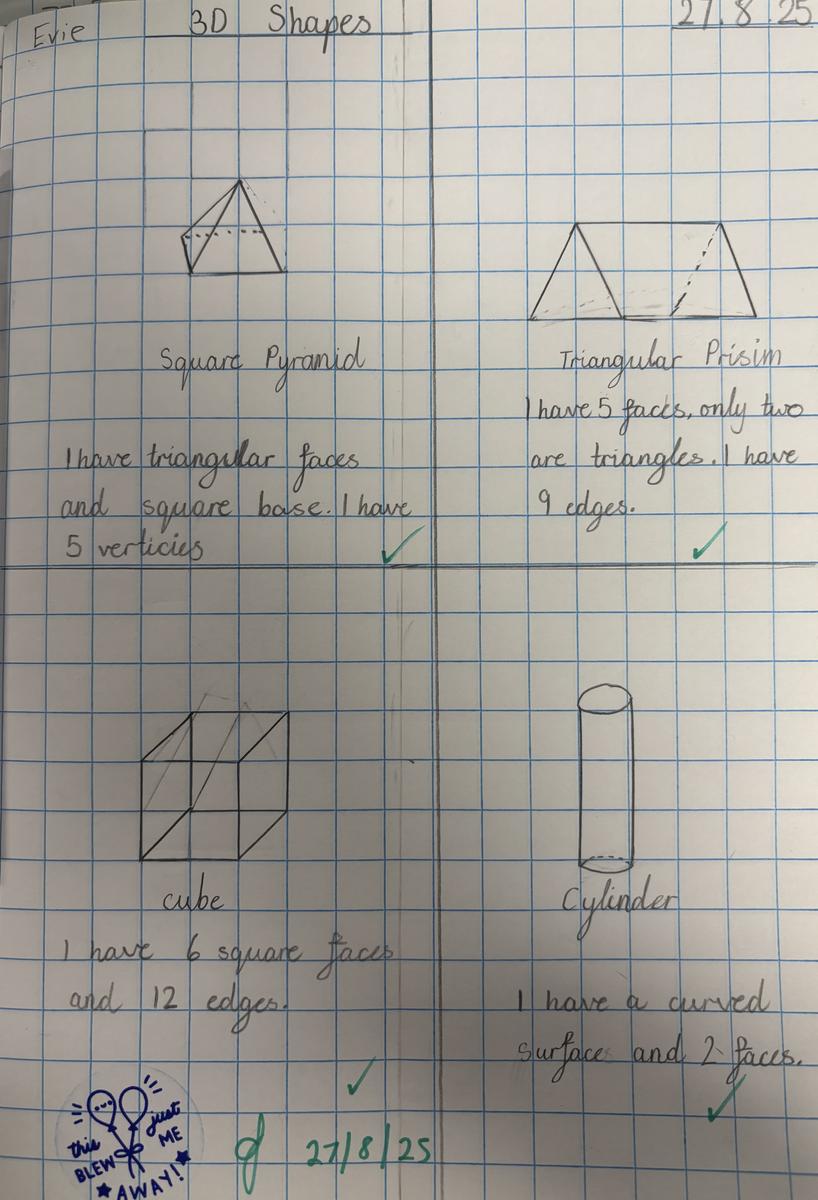 Evie
3D Shapes
27.8.25
Square Pyramid
I have triangular faces
and square base. I have
5 verticies
Triangular Prisim
I have 5 faces, only two
are triangles. I have
9 edges.
cube
I have 6 square faces
and 12 edges.
Cylinder
I have a curved
surface and 2 faces.
this
BLEW
AWAY!
just
ME
27/8/25